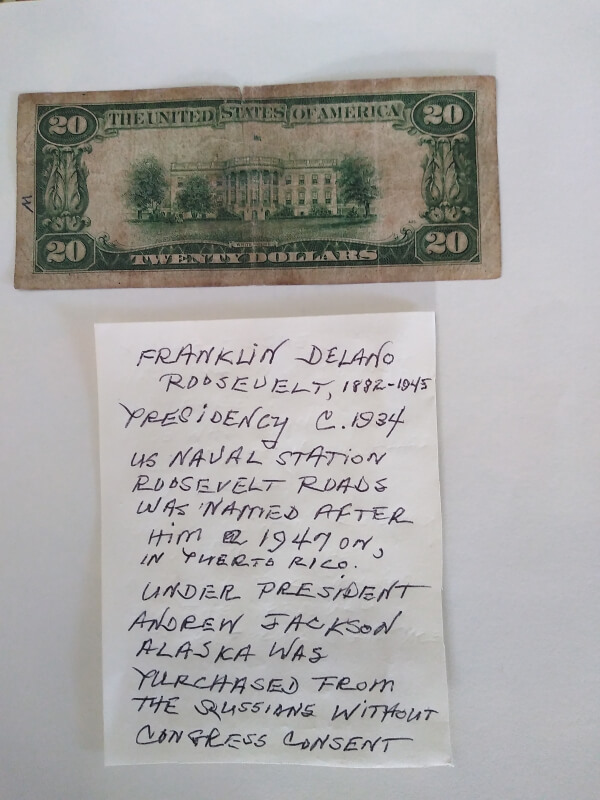 20 THE UNITED STATES OF AMERICA 20
20 TWENTY DOLLARS 20
FRANKLIN DELANO
ROOSEVELT, 1882-1945
PRESIDENCY C. 1934
US NAVAL STATION
ROOSEVELT ROADS
WAS NAMED AFTER
HIM 1947 ON,
IN PUERTO RICO.
UNDER PRESIDENT
ANDREW JACKSON
ALASKA WAS
PURCHASED FROM
THE RUSSIANS WITHOUT
CONGRESS CONSENT